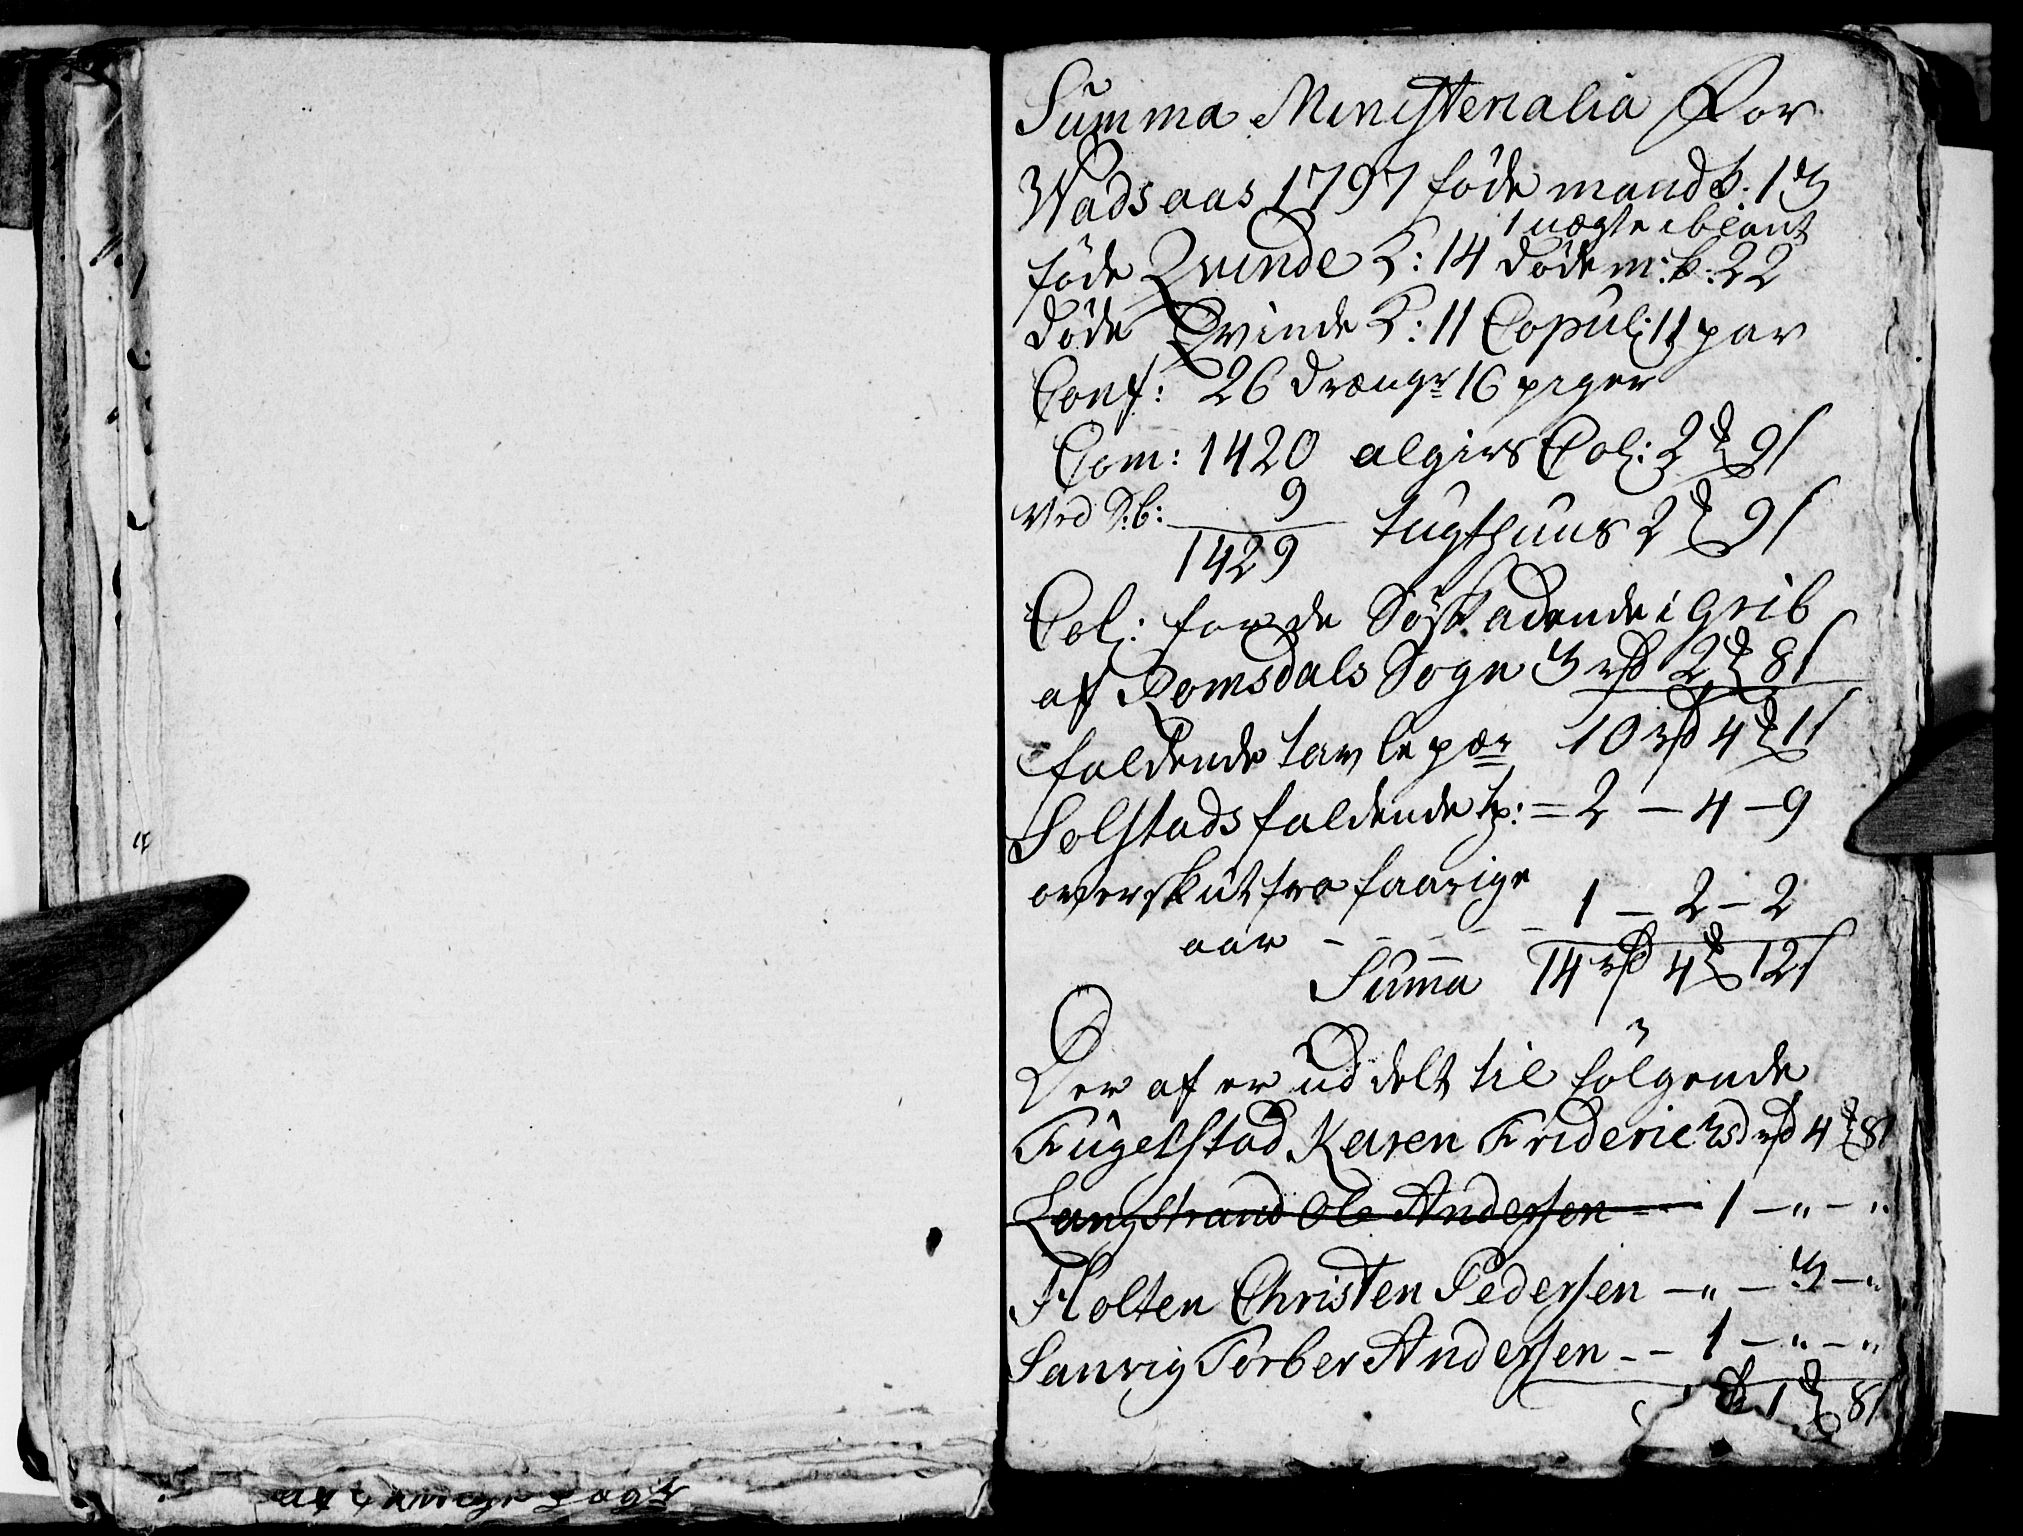 Summa Ministerialia For
Wadsaas 1797 föde mandk: 13
1 uægte iblant
föde Qvinde K: 14 döde m: k: 22
döde Qvinde K: 11 Copul: 11 par
Conf: 26 drænger 16 piger
Com: 1420 algirs Col: 2 # 9 s
Ved S: b: 9 tugthuus 2 # 9 s
1429
Col: for de Söskadende i Grib
af Romsdals Sogn 3 rd 2 # 8 s
faldende tavlepær 10 rd 4 # 1 s
Solstads faldende tp: = 2 – 4 – 9
overskut fra faarige
aar – – – – – 1 – 2 – 2
Summa 14 rd 4 # 12 s
Der af er uddelt til fölgende
Fugelstad Karen Frideric rd 4 # 8 s
Langstrand Ole Andersen – – 1 – " – "
Holten Christen Pedersen – " – 3 – "
Sanvig Torber Andersen – – 1 – " – "
1 # 8 s